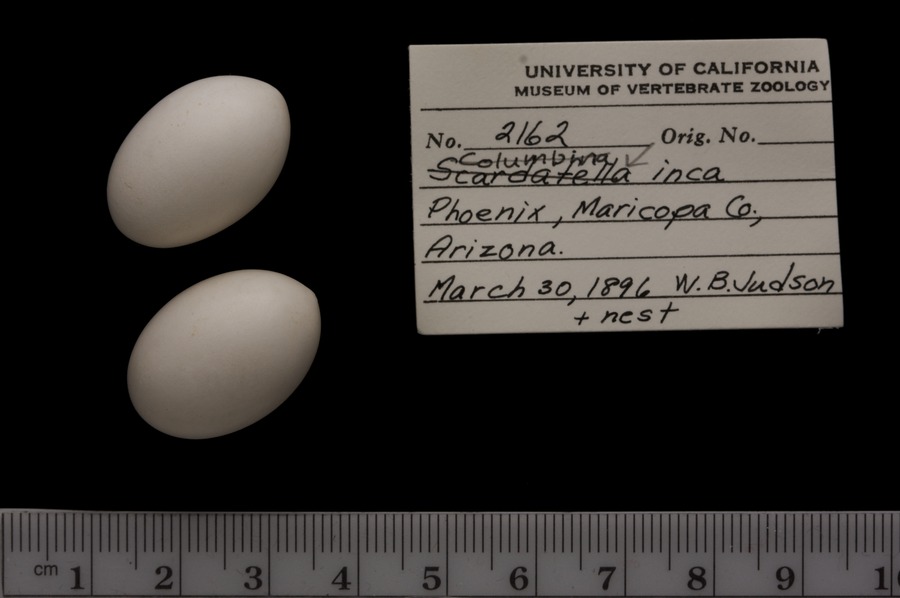 UNIVERSITY OF CALIFORNIA
MUSEUM OF VERTEBRATE ZOOLOGY
No. 2162 Orig. No.
Columbina
Scardafella inca
Phoenix, Maricopa Co.,
Arizona.
March 30, 1896 W.B. Judson
+ nest
cm 1 2 3 4 5 6 7 8 9 1